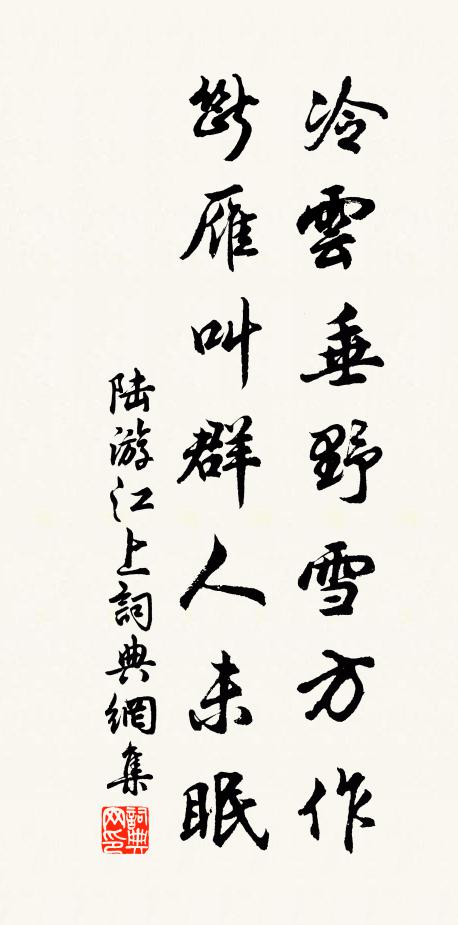 冷雲垂野雪方作
斷雁叫群人未眠
陆游江上詞典網集
詞典網印